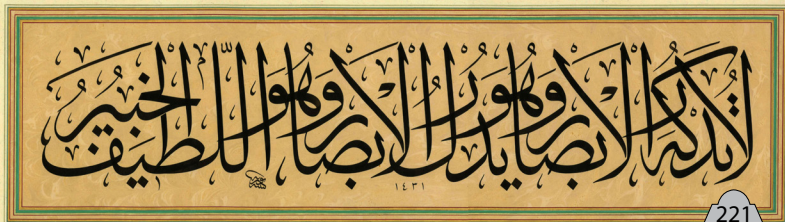 لا تدركه الابصار وهو يدرك الابصار وهو اللطيف الخبير
١٤٣١
221